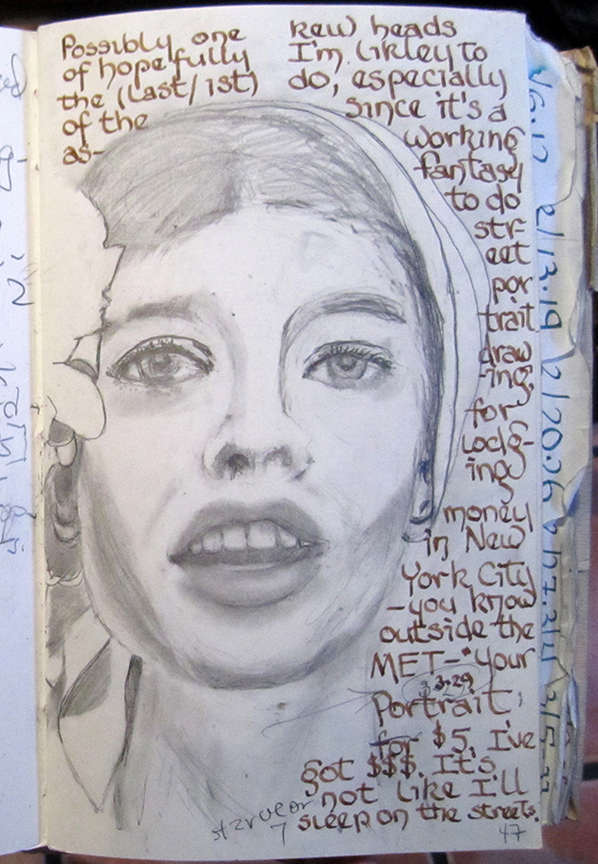 Possibly one
of hopefully
the (last/1st)
of the
as-
kew heads
I'm likley to
do, especially
since it's a
working
fantasy
to do
str-
eet
por
trait
draw
-ing,
for
lodg-
ing
money
in New
York City
-you know
outside the
MET-"your
3.29
Portrait
for $5, I've
got $$$. It's
not like I'll
starve or
sleep on the streets.
47
2/13.19
2/20.26